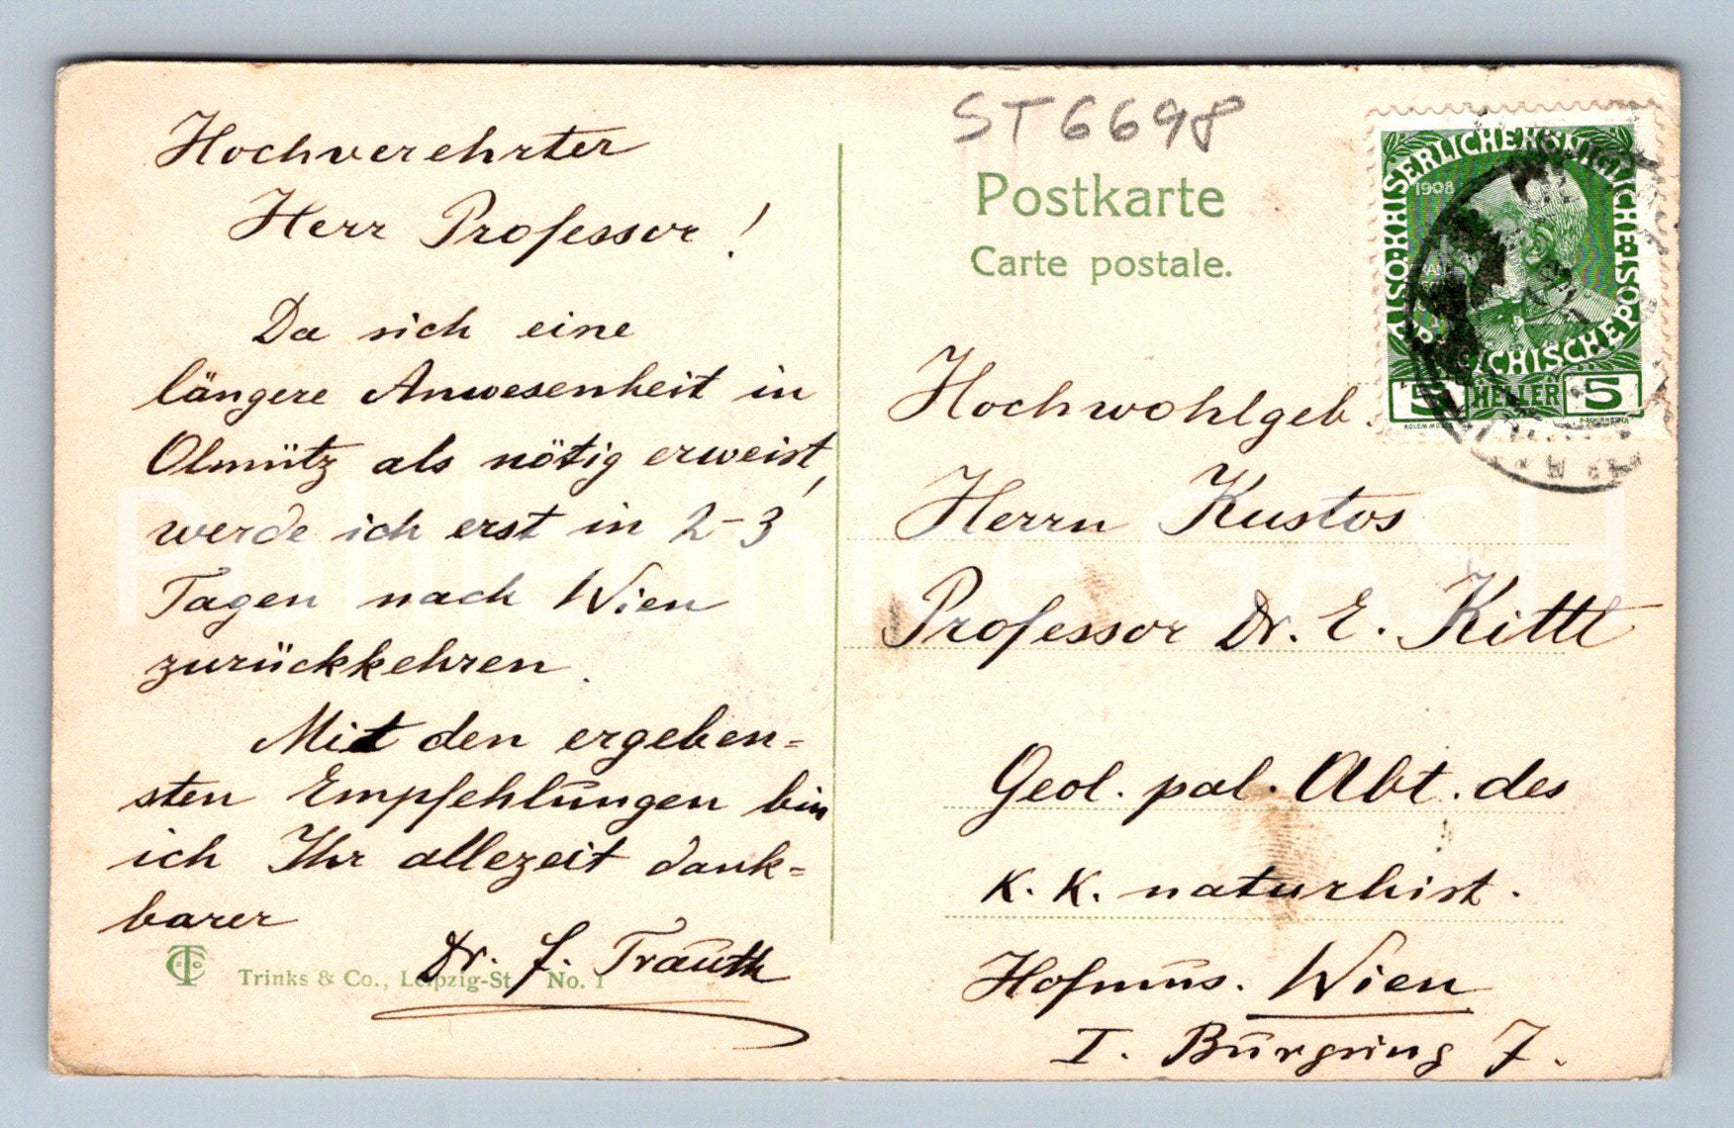 Hochverehrter
Herr Professor!
Da sich eine
längere Anwesenheit in
Olmütz als nötig erweist,
werde ich erst in 2-3
Tagen nach Wien
zurückkehren.
Mit den ergeben=
sten Empfehlungen bin
ich Ihr allezeit dank=
barer
Dr. F. Trauth
Trinks & Co., Leipzig-St No. 1
ST6698
Postkarte
Carte postale.
1908
5 HELLER 5
Hochwohlgeb.
Herrn Kustos
Professor Dr. E. Kittl
Geol. pal. Abt. des
K. K. naturhist.
Hofmus. Wien
I. Burgring 7.